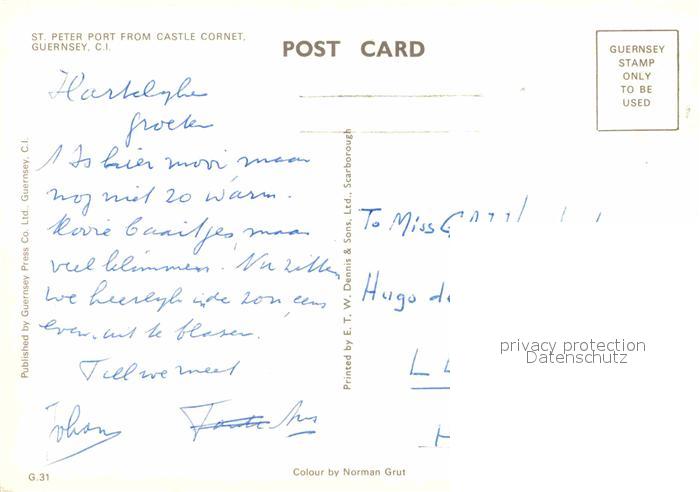 ST. PETER PORT FROM CASTLE CORNET,
GUERNSEY, C.I.
POST CARD
GUERNSEY
STAMP
ONLY
TO BE
USED
Hartelyke
groeten
't Is hier mooi maar
nog niet zo warm.
Mooie baaitjes, maar
veel klimmen. Nu zitten
we heerlyk in de zon eens
even uit te blazen.
Till we meet
Johan
To Miss
Hugo de
Published by Guernsey Press Co. Ltd., Guernsey, C.I.
Printed by E. T. W. Dennis & Sons, Ltd., Scarborough
privacy protection
Datenschutz
G.31
Colour by Norman Grut